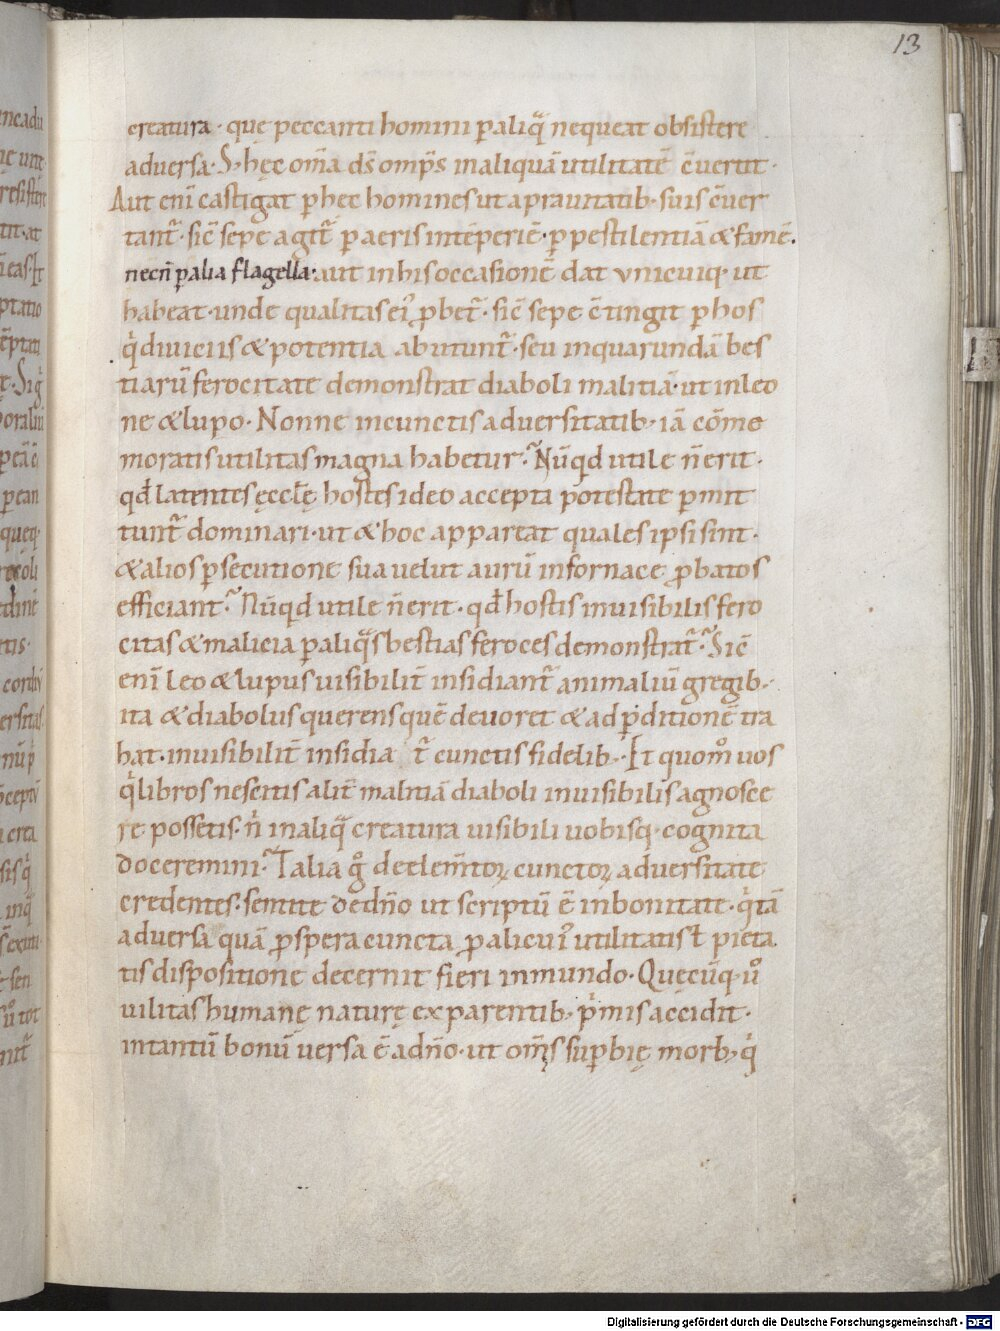 13
creatura · quę peccanti homini p aliq̄ nequeat obsistere
aduersa · S; hęc om̄a ds̄ omp̄s in aliquā utilitatē c̄uertit ·
Aut eni castigat p hęc homines ut a prauitatib; suis c̄uer
tant᷑ · sic̄ sepe agit᷑ p aeris intēperiē · p pestilentiā & famē.
necn̄ p alia flagella · aut in his occasionē dat unicuiq; ut
habeat · unde qualitas ei᷒ p̄bet᷑ · sic̄ sepe c̄tingit p hos
q̇ diuiciis & potentia abutunt᷑ · seu in quarundā bes
tiarū ferocitate demonstrat diaboli malitiā · ut in leo
ne & lupo · Nonne in cunctis aduersitatib; iā cōme
moratis utilitas magna habetur · Nūqd utile n̄ erit ·
qd̄ latentes ęccłę hostes ideo accepta potestate pmit
tunt᷑ dominari · ut & hoc appareat quales ipsi sint ·
& alios psecutione sua uelut aurū in fornace p̄batos
efficiant · Nūqd utile n̄ erit · qd̄ hostis inuisibilis fero
citas & malicia p aliq̄s bestias feroces demonstrat᷑ · Sic̄
eni leo & lupus uisibilit̄ insidiant᷑ animaliū gregib; ·
ita & diabolus querens quē deuoret & ad pditionē tra
hat · inuisibilit̄ insidia t᷑ cunctis fidelib; · Et quom̊ uos
q̇ libros nescitis alit̄ malitiā diaboli inuisibilis agnosce
re possetis · n̄ in aliq̄ creatura uisibili uobisq; cognita
doceremini · Talia g̊ de elem̄toꝝ cunctoꝝ aduersitate
credentes · sentite de dn̄o ut scriptū ē in bonitate · q̇ tā
aduersa quā p̄spera cuncta p alicui᷒ utilitatis ł pieta
tis dispositione decernit fieri in mundo · Quęcūq; ů
uilitas humanę naturę ex parentib; ṗmis accidit ·
in tantū bonū uersa ē a dn̄o · ut om̄s supbię morb; q̇
Digitalisierung gefördert durch die Deutsche Forschungsgemeinschaft - DFG